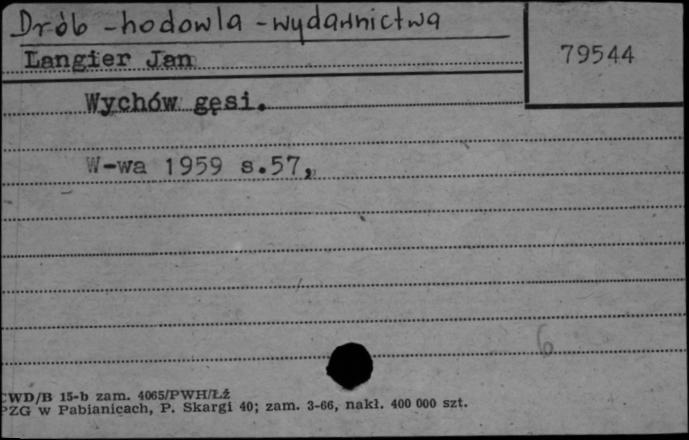 Drób - hodowla - wydawnictwa
Langier Jan
79544
Wychów gęsi.
W-wa 1959 s.57,
6
CWD/B 15-b zam. 4065/PWH/Łż
PZG w Pabianicach, P. Skargi 40; zam. 3-66, nakł. 400 000 szt.